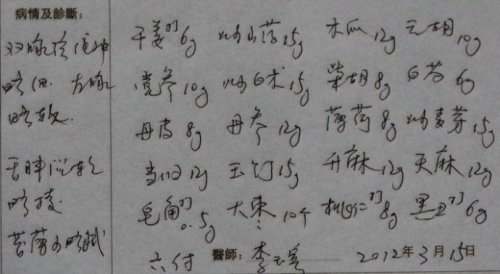 病情及診斷:
双脉 缓
略细. 左脉
略弦.
舌
略
苔薄 略腻
干姜(打)6g 炒山药15g 木瓜12g 元胡10g
党参10g 炒白术15g 柴胡8g 白芍6g
丹皮8g 丹参12g 薄荷8g 炒麦芽15g
当归12g 玉竹15g 升麻12g 天麻12g
皂角(打)0.5g 大枣10个 桃仁(打)8g 黑丑(打)6g
六付 醫師: 李 2012年3月15日